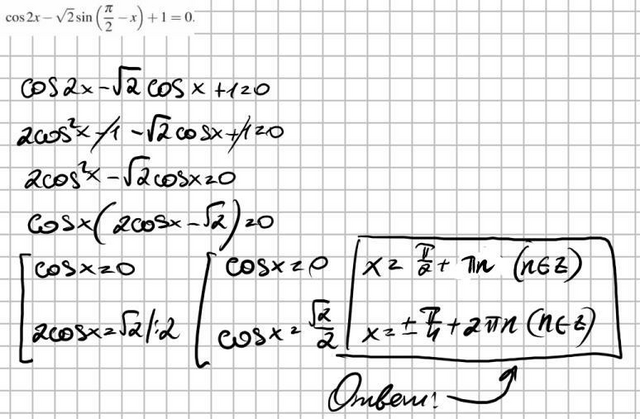 cos 2x − √2 sin (π/2 − x) + 1 = 0.
cos 2x − √2 cos x + 1 = 0
2cos²x − 1 − √2 cos x + 1 = 0
2cos²x − √2 cos x = 0
cos x (2cos x − √2) = 0
[ cos x = 0 [ cos x = 0 x = π/2 + πn (n ∈ Z)
2cos x = √2 |:2 cos x = √2/2 x = ± π/4 + 2πn (n ∈ Z)
Ответ: